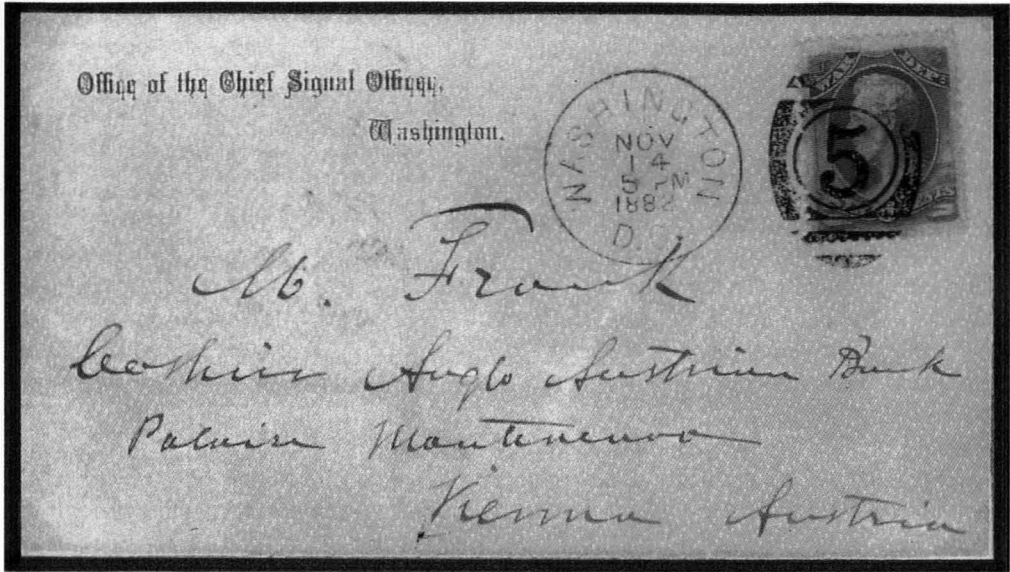 Office of the Chief Signal Officer,
Washington.
WASHINGTON
NOV
14
5 PM
1882
D.C.
5
M. Frank
Cashier Anglo Austrian Bank
Palais Montenuovo
Vienna Austria